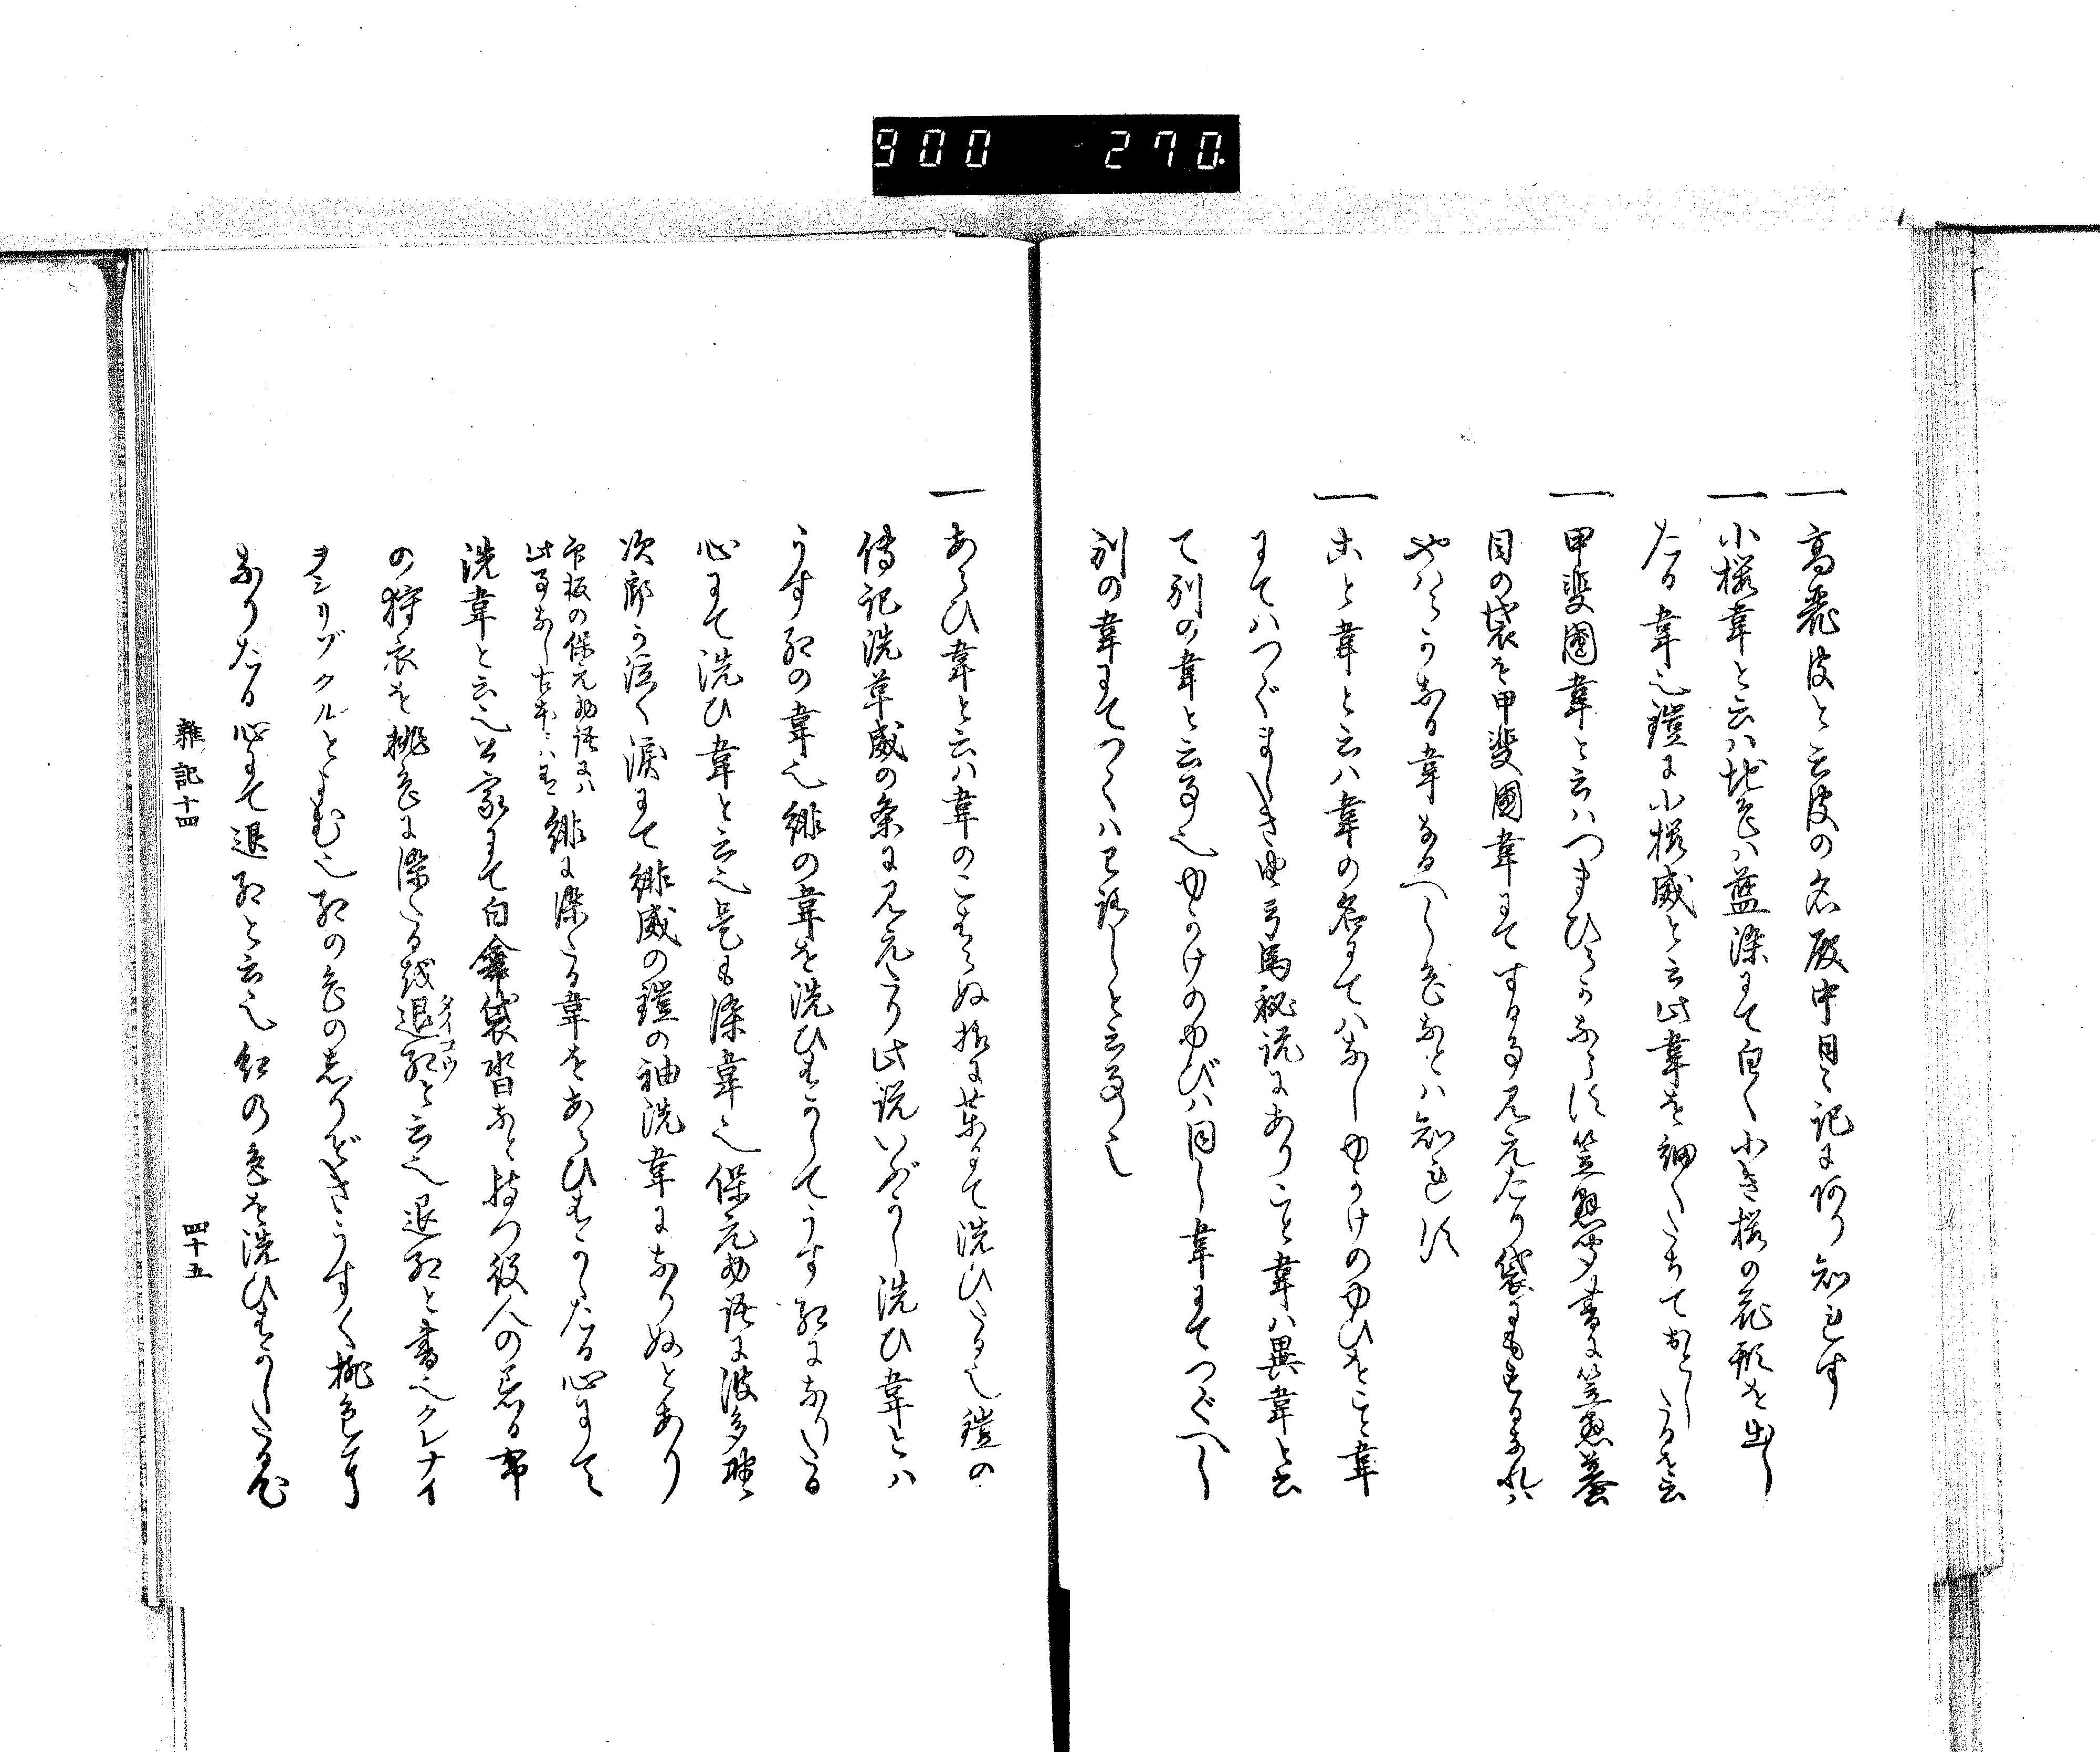 900 270.
一 高麗皮と云皮の名殿中日々記に阿り知れす
一 小桜韋と云ハ地色ハ藍染にて白く小き桜の花形を出し
たる韋也鎧に小桜威と云此韋を細くたちておとしたるを云
一 甲斐國韋と云ハつまひらかならす笠懸聞書に笠懸蟇
目の袋を甲斐國韋にてする事見えたり袋にもするなれハ
やハらかなる韋なるへし色なとハ知れす
一 こと韋と云ハ韋の名にてハなしゆかけのゆひをこと韋
にてハつぐましき由弓馬秘説にありこと韋ハ異韋と云
て別の韋と云事也ゆかけのゆびハ同し韋にてつぐへし
別の韋にてつくハわろしと云事也
一 あらひ韋と云ハ韋のこわらぬ様に薬にて洗ひたる也鎧の
傳記洗革威の条に見えたり此説いぶかし洗ひ韋とハ
うす紅の韋也緋の韋を洗ひすかしてうす紅になりたる
心にて洗ひ韋と云也是も染韋也保元物語に波多野
次郎か泣く涙にて緋威の鎧の袖洗韋になりぬとあり
印板の保元物語にハ
此事なし古本にハあり
緋に染たる韋をあらひすかしたる心にて
洗韋と云也公家にて白傘袋沓なと持つ役人の着る布
の狩衣を桃色に染たる越退紅と云也退紅と書也クレナイ
タイコウ
ヲシリゾクルとよむ也紅の色のしりぞきうすく桃色に
なりたる心にて退紅と云也紅の色を洗ひすかしたる色
雜記十四
四十五